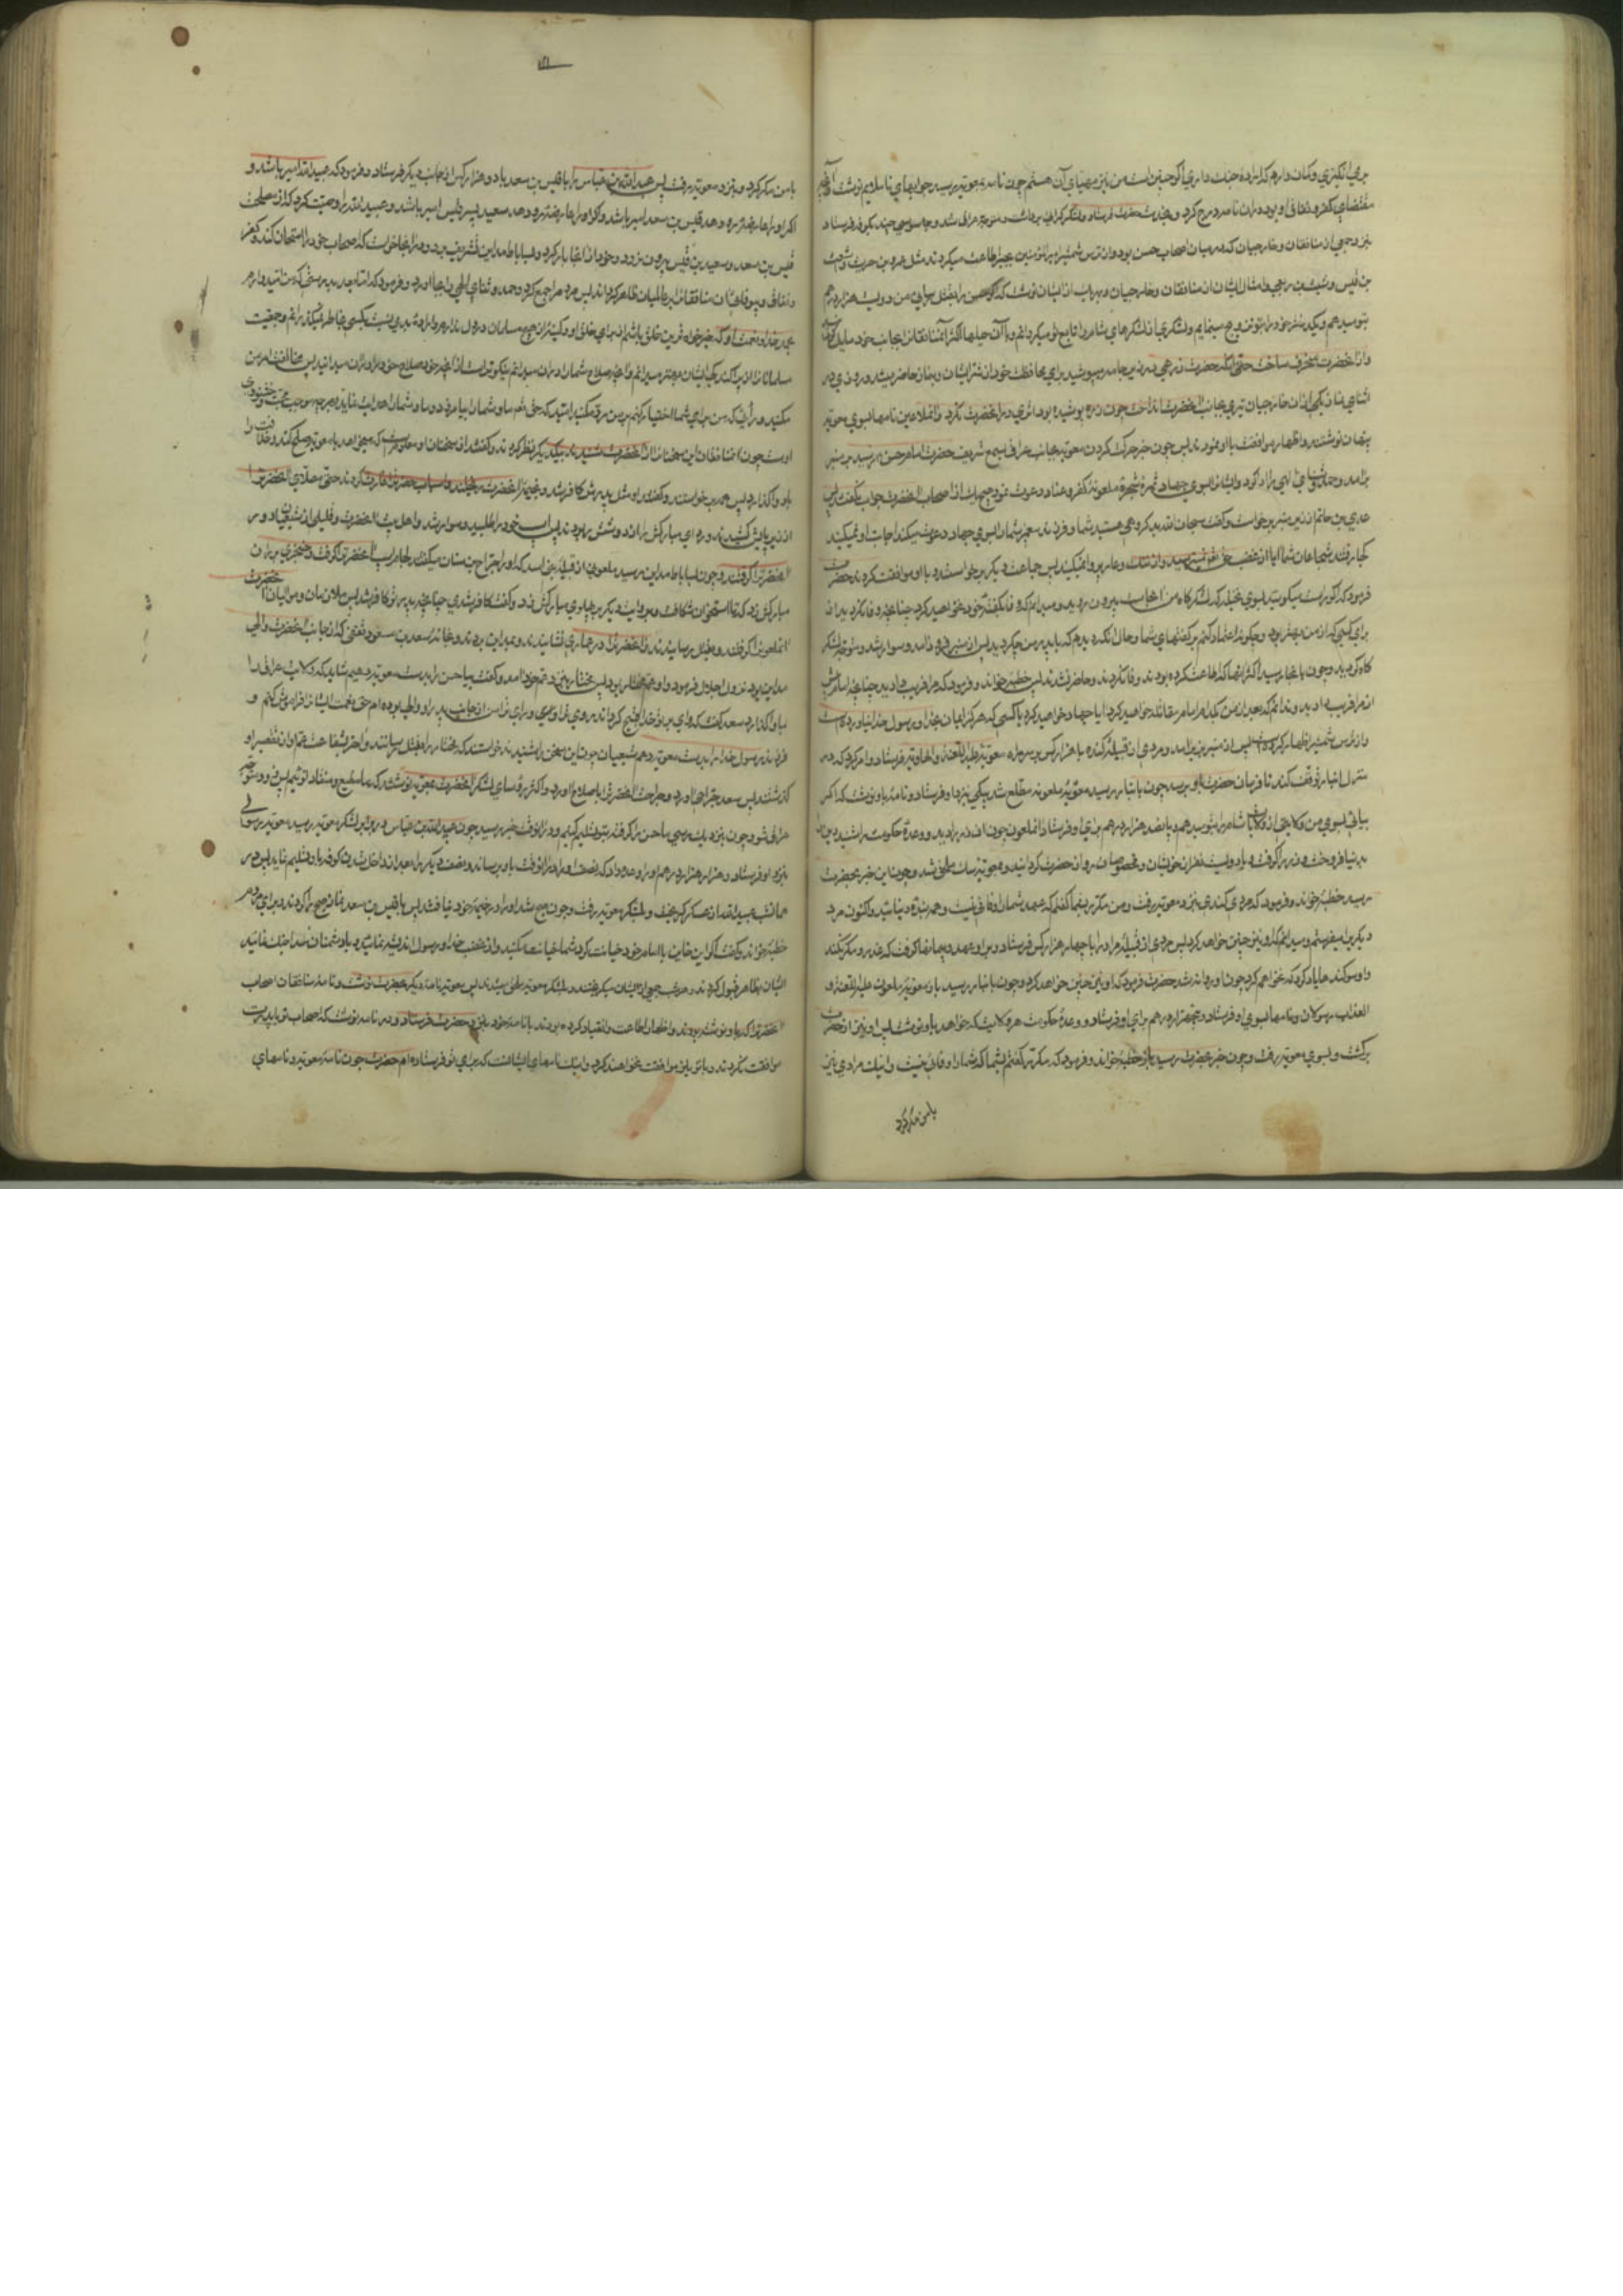 بر می انگیزی و گمان دارم که اراده جنگ داری اگر چنین است من نیز مهیای آن هستم چون نامه بمعویه رسید جوابهای ناملایم نوشت
مقتضای کفر و نفاق او بود در ان نامه درج کرد و بخدمت حضرت فرستاد و لشکر گران برداشت و متوجه عراق شد و جاسوسی چند بکوفه فرستاد
نزد جمعی از منافقان و خارجیان که در میان اصحاب حسن بودند و از ترس شمشیر امیرالمؤمنین بجبر اطاعت میکردند مثل عمرو بن حریث و اشعث
بن قیس و شبث بن ربعی و امثال ایشان از منافقان و خارجیان و بهر یک از ایشان نوشت که اگر حسن را بقتل رسانی من دویست هزار درهم
بتو میدهم و یک دختر خود را بتو تزویج مینمایم و لشکری از لشکرهای شام را تابع تو میکردانم و باین حیلها اکثر منافقان را بجانب خود مایل
و از آنحضرت منحرف ساخت حتی آنکه حضرت زرهی در زیر جامه میپوشید برای محافظت خود از شر ایشان و بنماز حاضر میشد روزی در
اثنای نماز یکی از ان خارجیان تیری بجانب آنحضرت انداخت چون زره پوشیده بود اثری در آنحضرت نکرد و آن ملاعین نامها بسوی معویه
پنهان نوشتند و اظهار موافقت با او نمودند پس چون خبر حرکت کردن معویه بجانب عراق بسمع شریف حضرت امام حسن رسید بر منبر
برآمد و حمد و ثنای الهی را ادا کرد و ایشانرا بسوی جهاد ثمره شجره ملعونه کفر و عناد دعوت نمود هیچ یک از اصحاب آنحضرت جواب نگفت پس
عدی بن حاتم از زیر منبر برخاست و گفت سبحان الله بد گروهی هستید شما و فرزند پیغمبر شما شما را بسوی جهاد دعوت میکند اجابت او نمیکنید
کجا رفتند شجاعان شما ایا از غضب حق تعالی نمیترسید و از ننگ و عار پروا نمیکنید پس جماعت دیگر برخاستند و با او موافقت کردند حضرت
فرمود که اگر راست میگویید بسوی نخیله که لشکرگاه من انجاست بیرون روید و میدانم که وفا بگفته خود نخواهید کرد چنانچه وفا نکردید از
برای کسی که از من بهتر بود و چگونه اعتماد کنم بر گفتهای شما و حال آنکه دیدم که با پدر من چه کردید پس از منبر فرود آمد و سوار شد و متوجه لشکر
گاه گردید و چون بانجا رسید اکثر انها که اطاعت کرده بودند وفا نکردند و حاضر نشدند پس خطبه خواند و فرمود که مرا فریب دادید چنانچه امام پیش
از مرا فریب دادید و ندانم که بعد از من با کدام امام مقاتله خواهید کرد ایا جهاد خواهید کرد با کسی که هرگز ایمان بخدا و رسول خدا نیاورده است
و از ترس شمشیر اظهار کرده است پس از منبر بزیر آمد و مردی از قبیله کنده با چهار هزار کس بر سر راه معویه علیه اللعنة و الهاویه فرستاد و امر کرد که در
منزل انبار توقف کند تا فرمان حضرت باو برسد چون بانبار رسید معویه ملعونه مطلع شد پیکی بنزد او فرستاد و نامه باو نوشت که اگر
بیائی بسوی من ولایتی از ولایات شام را بتو میدهم و پانصد هزار درهم برای او فرستاد آن ملعون چون آن زر را دید و وعده حکومت را شنید دین
بدنیا فروخت و زر را گرفت و با دویست نفر از خویشان و مخصوصان رو از حضرت گردانید و بمعویه ملحق شد و چون این خبر بحضرت
رسید خطبه خواند و فرمود که مردی کندی بنزد معویه رفت و من مکرر بشما گفتم که عهد شما را وفائی نیست و همه بنده دنیائید و اکنون مرد
دیگر را میفرستم و میدانم که او نیز چنین خواهد کرد پس مردی از قبیله مراد را با چهار هزار کس فرستاد و بر او عهد و پیمانها گرفت که غدر و مکر نکند
و او سوگندها یاد کرد که نخواهم کرد چون او روانه شد حضرت فرمود که او نیز چنین خواهد کرد و چون بانبار رسید باز معویه ملعون علیه اللعنة و
العذاب رسولان و نامها بسوی او فرستاد و پنجهزار درهم برای او فرستاد و وعده حکومت هر ولایت که خواهد باو نوشت پس او نیز از حضرت
برگشت و بسوی معویه رفت و چون خبر بحضرت رسید باز خطبه خواند و فرمود که مکرر گفتم بشما که شما را وفائی نیست و اینک مرادی نیز
با من مکر کرد
با من مکر کرد و بنزد معویه رفت پس عبیدالله بن عباس را با قیس بن سعد با دوازده هزار کس از جانب دیگر فرستاد و فرمود که عبیدالله امیر باشد و
اگر او را عارضه رو دهد قیس بن سعد امیر باشد و اگر او را عارضه رو دهد سعید پسر قیس امیر باشد و عبیدالله را وصیت کرد که از مصلحت
قیس بن سعد و سعید بن قیس بیرون نرود و خود از انجا بار کرد و بساباط مداین تشریف برد و در انجا خواست که اصحاب خود را امتحان کند و کفر
و نفاق و بیوفائی ان منافقان را بر عالمیان ظاهر گرداند پس مردم را جمع کرد و حمد و ثنای الهی بجا آورد و فرمود که اما بعد بدرستی که من امیدوارم
بحمد خدا و نعمت او که خیرخواه ترین خلق باشم از برای خلق او و کینه از هیچ مسلمان در دل ندارم و اراده بدی نسبت بکسی بخاطر نمیگذرانم و جمعیت
مسلمانان را از پراکندگی ایشان بهتر میدانم و آنچه صلاح شما را در ان میدانم نیکوتر است از آنچه خود صلاح خود را در ان میدانید پس مخالفت امر من
مکنید و رأیی که من برای شما اختیار کنم بر من رد مکنید امید که حق تعالی ما و شما را بیامرزد و ما و شما را هدایت نماید بهر چه موجب محبت و خشنودی
اوست چون منافقان این سخنان را از آنحضرت شنیدند بیکدیگر نظر کردند و گفتند از سخنان او معلوم است که میخواهد با معویه صلح کند و خلافت را
باو واگذارد پس همه برخاستند و گفتند او مثل پدرش کافر شد و بخیمه آنحضرت ریختند و اسباب حضرت را غارت کردند حتی مصلای آنحضرت را
از زیر پایش کشیدند و ردای مبارکش را از دوشش ربودند پس اسب خود را طلبید و سوار شد و اهل بیت آنحضرت و قلیلی از شیعیان دور
آنحضرت را گرفتند و چون بساباط مداین رسید ملعونی از قبیله بنی اسد که او را جراح بن سنان میگفتند لجام اسب آنحضرت را گرفت و خنجری بر ران
مبارکش زد که تا استخوان شکافت و بروایت دیگر بر پهلوی مبارکش زد و گفت کافر شدی چنانچه پدر تو کافر شد پس ملازمان و موالیان حضرت
آن ملعون را گرفتند و بقتل رسانیدند و آنحضرت را در عماری نشانیدند و بمداین بردند و بخانه سعد بن مسعود ثقفی که از جانب آنحضرت والی
مداین بود نزول اجلال فرمود و او عم مختار بود پس مختار بنزد عم خود آمد و گفت بیا حسن را بدست معویه دهیم شاید که ولایت عراق را
بما واگذارد سعد گفت که وای بر تو خدا قبیح گرداند روی ترا و رای ترا من از جانب پدر او والی بوده ام حق نعمت ایشانرا فراموش کنم و
فرزند رسول خدا را بدست معویه دهم شیعیان چون این سخن را شنیدند خواستند که مختار را بقتل رسانند و آخر بشفاعت عم او از تقصیر او
گذشتند پس سعد جراحی آورد و جراحت آنحضرت را باصلاح آورد و اکثر رؤسای لشکر آنحضرت بمعویه نوشتند که ما مطیع و منقاد توئیم پس زود متوجه
عراق شو و چون نزدیک رسی ما حسن را گرفته بتو تسلیم کنیم و در انوقت خبر رسید چون عبیدالله بن عباس در برابر لشکر معویه رسید معویه رسولی
بنزد او فرستاد و هزار هزار درهم او را وعده داد که نصف را در انوقت باو برساند و نصف دیگر را بعد از داخل شدن کوفه باو تسلیم نماید پس در
همان شب عبیدالله از عسکر گریخت و بلشکر معویه رفت و چون صبح شد او را در خیمه خود نیافتند پس با قیس بن سعد نماز صبح را کردند و برای مردم
خطبه خواند و گفت اگر این خاین با امام خود خیانت کرد شما خیانت مکنید و از غضب خدا و رسول اندیشه نمائید و با دشمنان خدا جنگ نمائید
ایشان بظاهر قبول کردند و هر شب جمعی از ایشان میگریختند و بلشکر معویه ملحق میشدند پس معویه نامه دیگر بحضرت نوشت و نامه منافقان اصحاب
آنحضرت را که باو نوشته بودند و اظهار اطاعت و انقیاد کرده بودند با نامه خود بنزد حضرت فرستاد و در نامه نوشت که اصحاب تو با پدرت
موافقت نکردند و با تو نیز موافقت نخواهند کرد و اینک نامهای ایشانست که برای تو فرستاده ام حضرت چون نامه معویه و نامهای